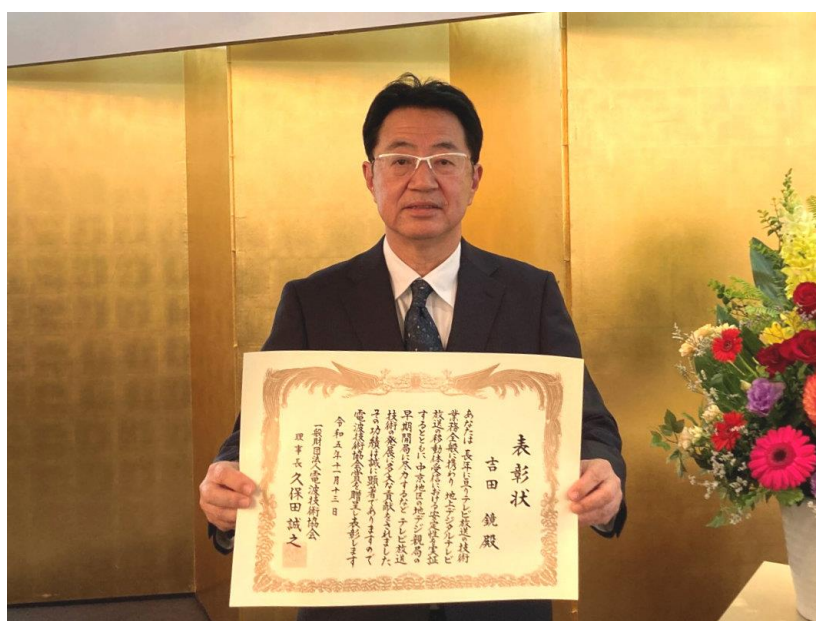 表彰状
吉田 鏡 殿
あなたは 長年に亘りテレビ放送の技術
業務全般に携わり 地上デジタルテレビ
放送の移動体受信における安定性を実証
するとともに 中京地区の地デジ親局の
早期開局に尽力するなど テレビ放送
技術の発展に多大な貢献をされました
その功績は誠に顕著でありますので
電波技術協会賞を贈呈し表彰します
令和五年十一月十三日
一般財団法人電波技術協会
理事長 久保田誠之